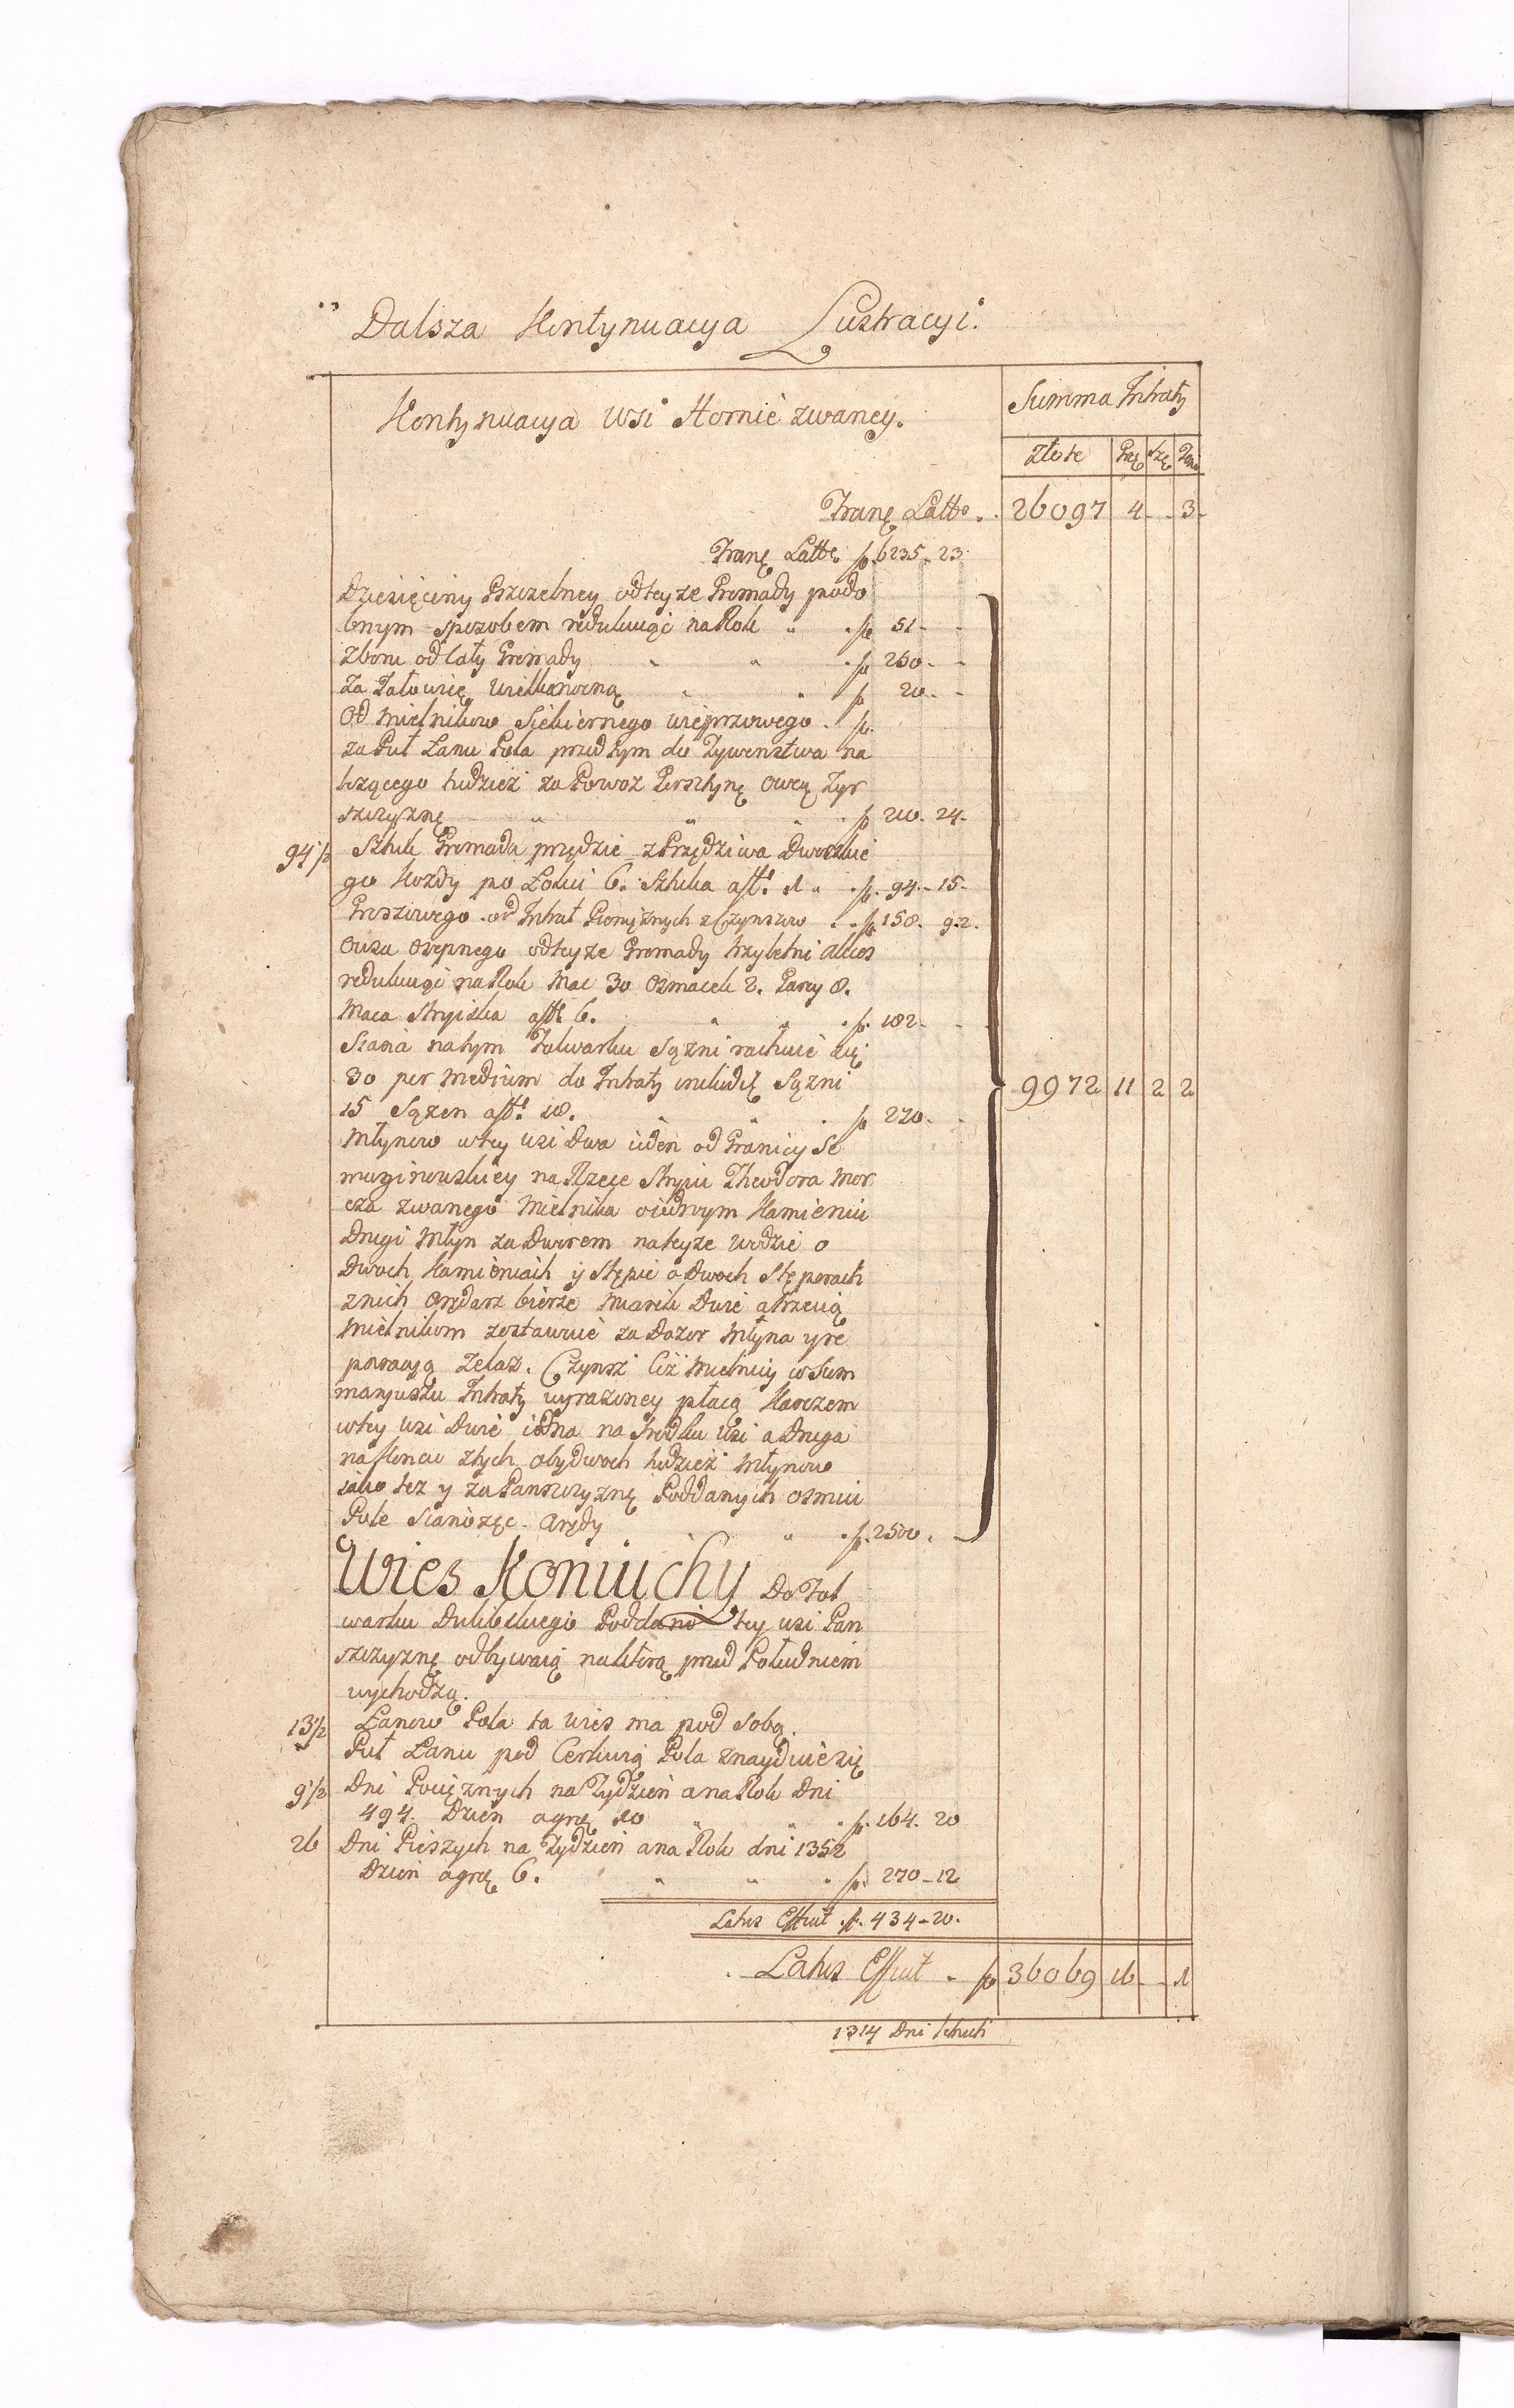 Dalsza Kontynuacya Lustracyi.
Kontynuacya wsi Hornie zwaney.
Summa Intraty
Złote | Grę | Szę | Den
Tranę Latte . . 26097 4 - - 3 -
Tranę Latte fp. 6235 - 23
Dziesięciny Pszczelney odteyze Gromady podo
bnym sposobem redukuiąc na Rok " . fp 51 - -
Zboru od Cały Gromady " " . fp 260 - -
Za Jałowię Wielkanocną " . fp 20 - -
Od Mielnikow Siekiernego wieprzowego . fp.
za Puł Łanu Pola przedtym do Zywenstwa na
lezącego tudzież za Powoz Perszczynę owcę Tyr
szczyznę " " " . fp 210 - 24 -
94 1/2 Sztuk Gromada przędzie z Przędziwa Dworskie
go Kozdy po Łokci 6. Sztuka aff. 1 " . fp. 94 - 15 -
Groszowego od Intrat Pieniężnych z Czynszow . . fp 158. 9.2.
Owsa osepnego odteyze Gromady trzyletni
redukuiąc na Rok Mac 30 Osmacek 2. Garcy 8.
Maca Stryiska aff. 6. " " . fp. 182 -
Siana natym Folwarku Sązni rachuie się
30 per medium do Intraty includit Sązni 9972 | 11 | 2 | 2
15 Sązen aff. 18. " . fp 270 - -
Młynow wtey wsi Dwa ieden od Granicy Se
muginowskiey na Rzece Stryiu Theodora Mor
cza zwanego Mielnika oiednym Kamieniu
Drugi Młyn za Dworem nateyze wodzie o
Dwoch Kamieniach y Stępie o Dwoch Stęporach
znich Orędarz bierze Miarek Dwie atrzecią
Mielnikom zostawuie za Dozor Młyna yre
peracyą Zelaz. Czynsz Ciż Mielnicy w Sum
maryuszu Intraty wyrazoney płacą Karczem
wtey wsi Dwie iedna na Srodku Wsi a Druga
na Koncu ztych obydwoch tudzież Młynow
iako tez y za Panszczyznę Poddanych osmiu
Pole Sianożęc - Arędy " . fp. 2500 . -
Wies Koniuchy Do Fol
warku Dulibskiego Poddani tey wsi Pan
szczyznę odbywaią naktorą przed Południem
wychodzą.
13 1/2 Łanow Pola ta wies ma pod sobą.
Puł Łanu pod Cerkwią Pola znayduie się
9 1/2 Dni Pociężnych na Tydzień ana Rok Dni
494. Dzien agrę 10 " . fp. 164. 20
26 Dni Pieszych na Tydzień ana Rok dni 1352
Dzien agrę 6. " " . fp. 270 - 12
Latus Efficit . fp. 434 - 20.
Latus Efficit . fp 36069 16 - - 1
1314 Dni